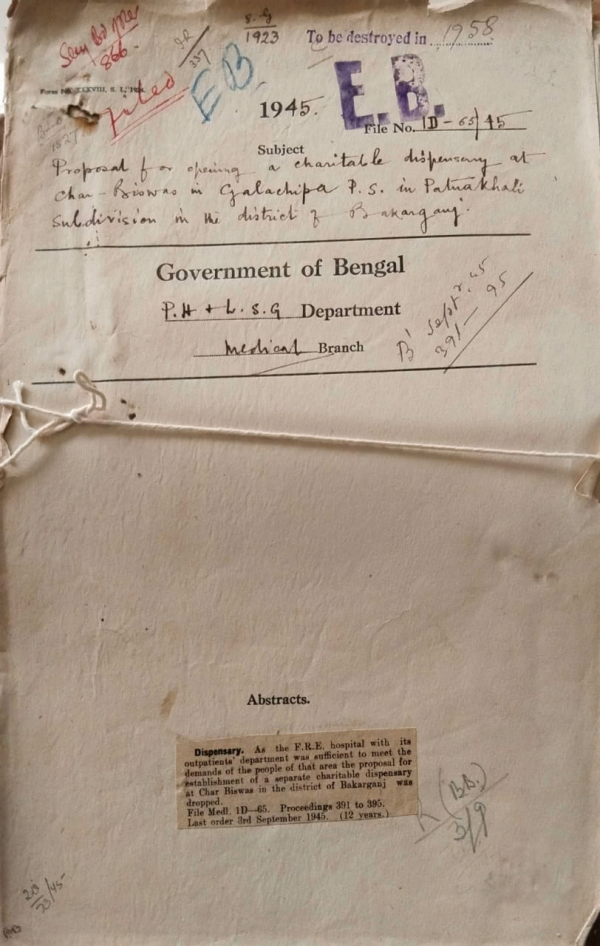 S. G
1923
To be destroyed in 1958
866
337
Filed
EB
E.B.
1945.
File No. 1D-65/45
Subject
Proposal for opening a charitable dispensary at
Char-Biswas in Galachipa P.S. in Patuakhali
Subdivision in the district of Bakarganj.
Government of Bengal
P.H + L.S.G Department
Medical Branch
B' Sept. 45
391-95
Abstracts.
Dispensary. As the F.R.E. hospital with its
outpatients' department was sufficient to meet the
demands of the people of that area the proposal for
establishment of a separate charitable dispensary
at Char Biswas in the district of Bakarganj was
dropped.
File Medl. 1D—65. Proceedings 391 to 395.
Last order 3rd September 1945. (12 years.)
3/9